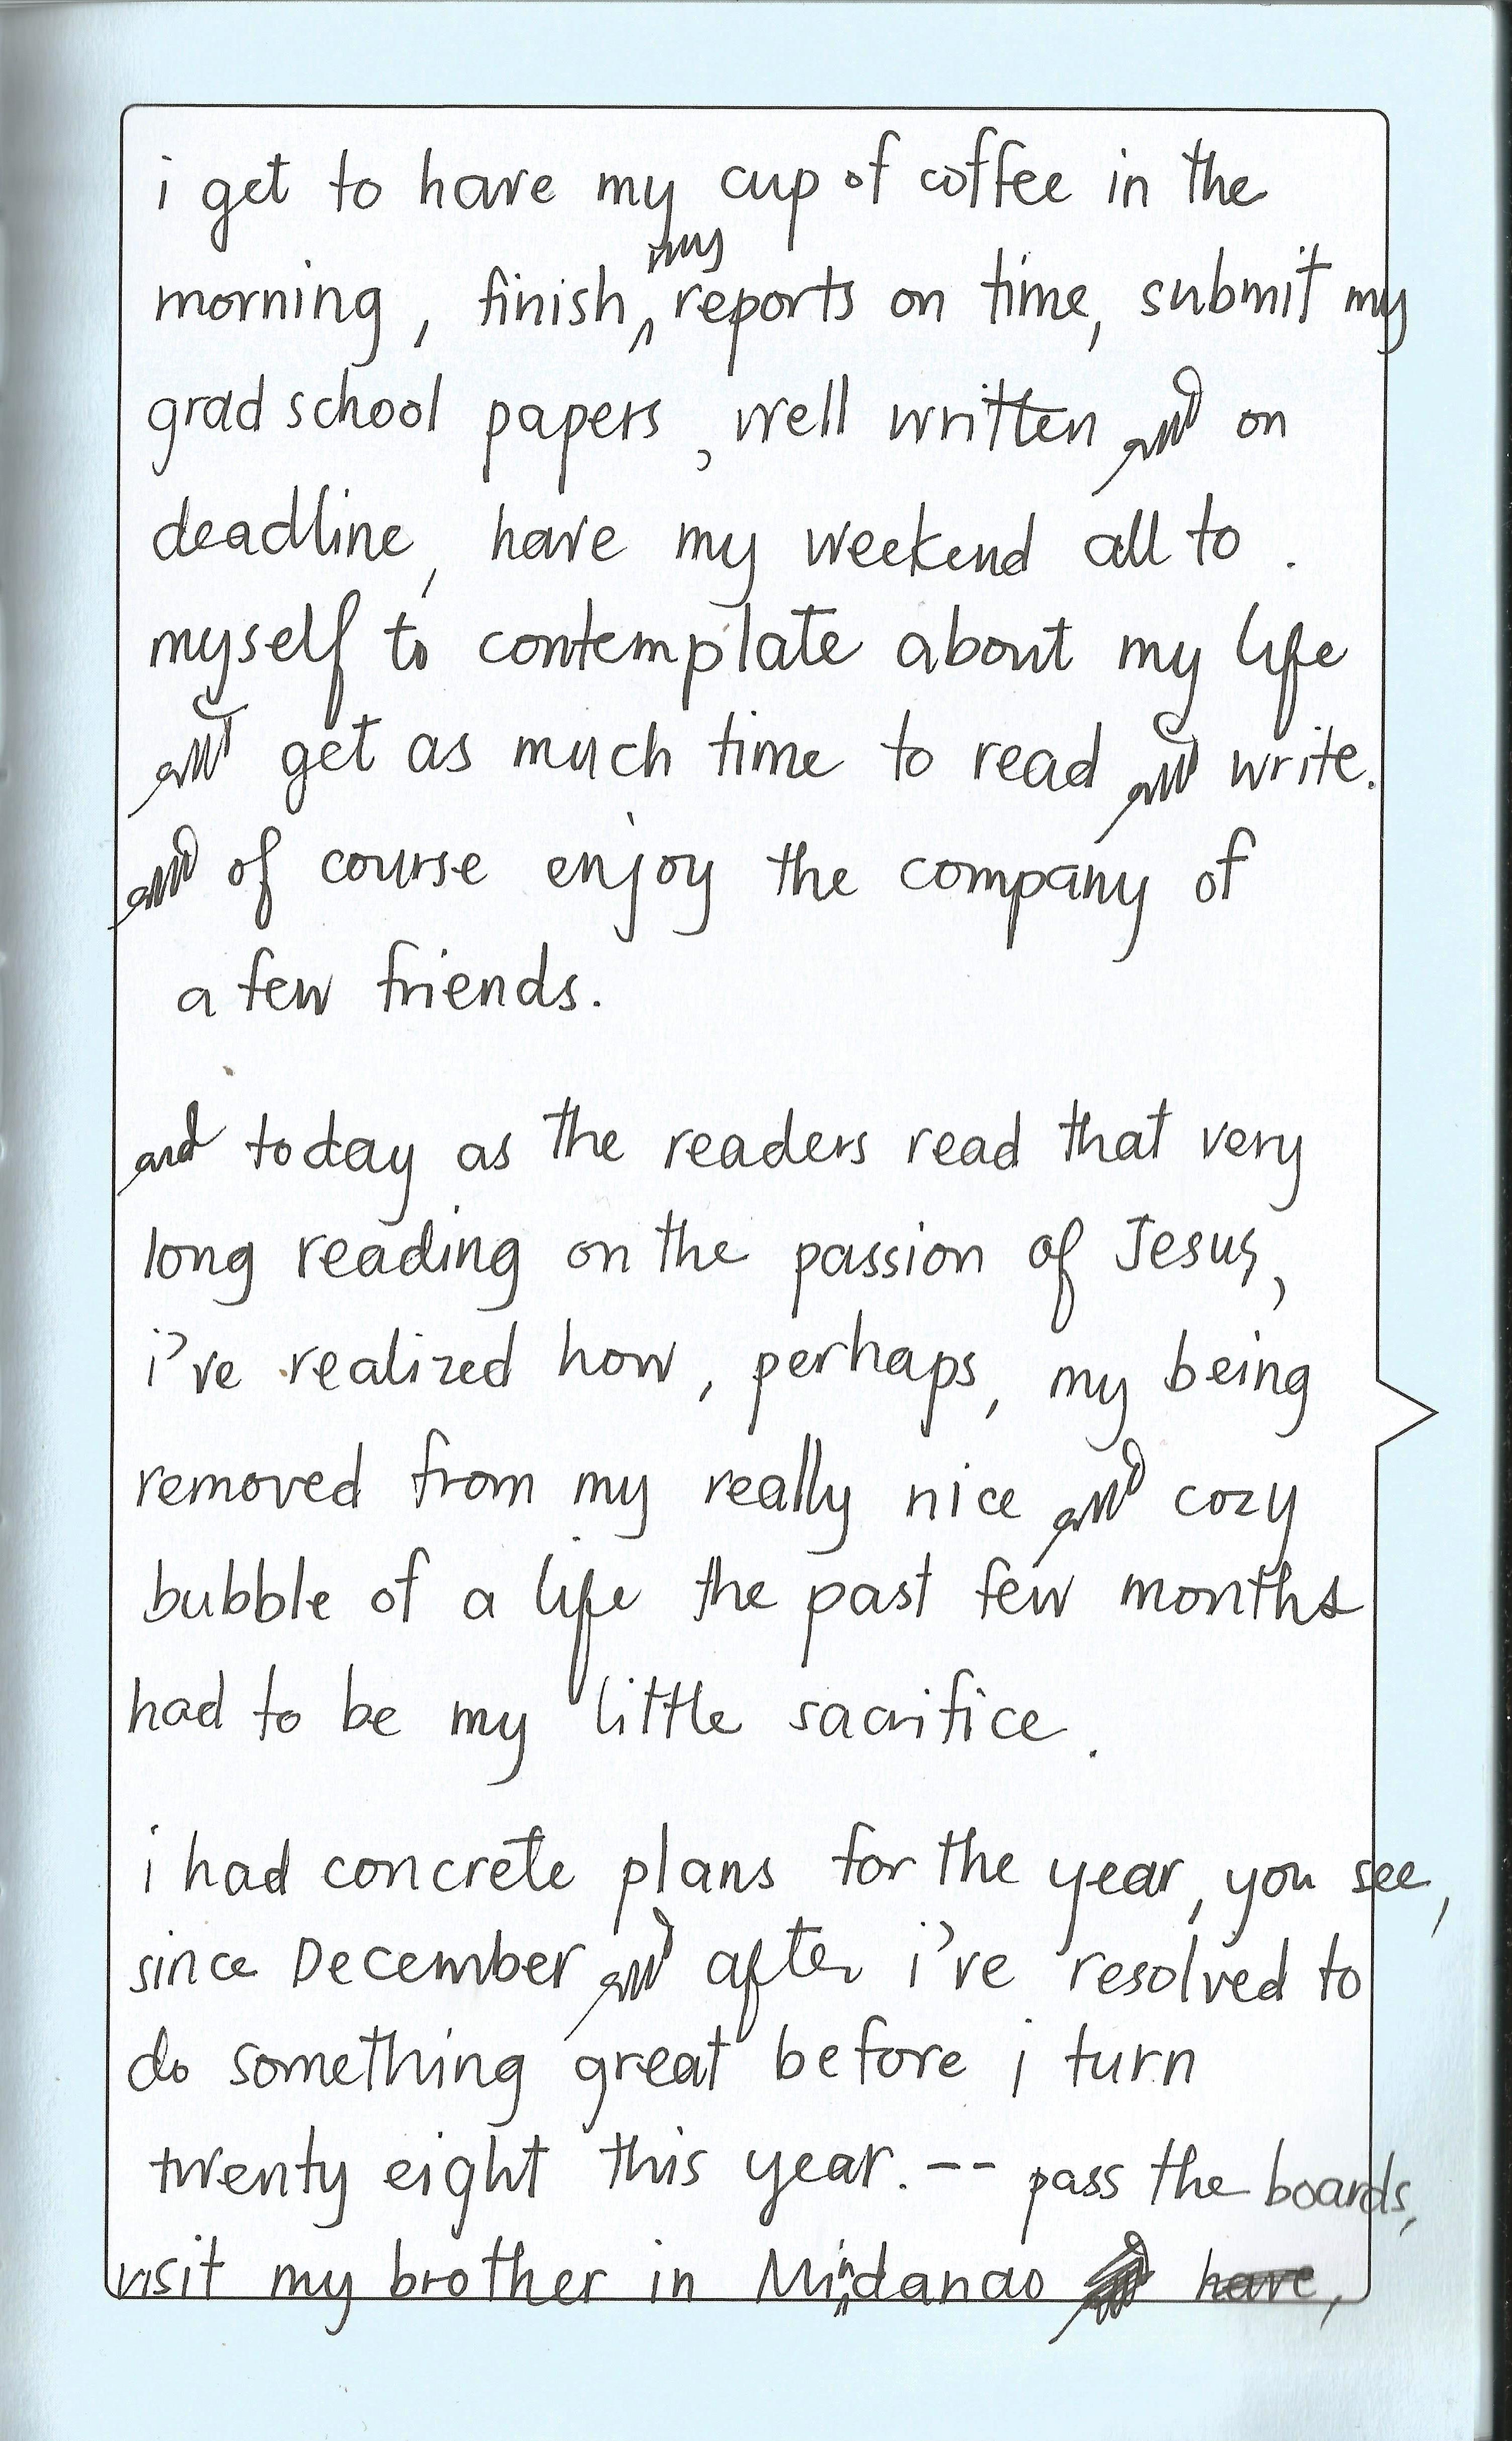 i get to have my cup of coffee in the
morning, finish my reports on time, submit my
grad school papers, well written and on
deadline, have my weekend all to.
myself to contemplate about my life
and get as much time to read and write.
and of course enjoy the company of
a few friends.
and today as the readers read that very
long reading on the passion of Jesus,
i've realized how, perhaps, my being
removed from my really nice and cozy
bubble of a life the past few months
had to be my little sacrifice.
i had concrete plans for the year, you see,
since December and after i've resolved to
do something great before i turn
twenty eight this year. -- pass the boards,
visit my brother in Mindanao and have,